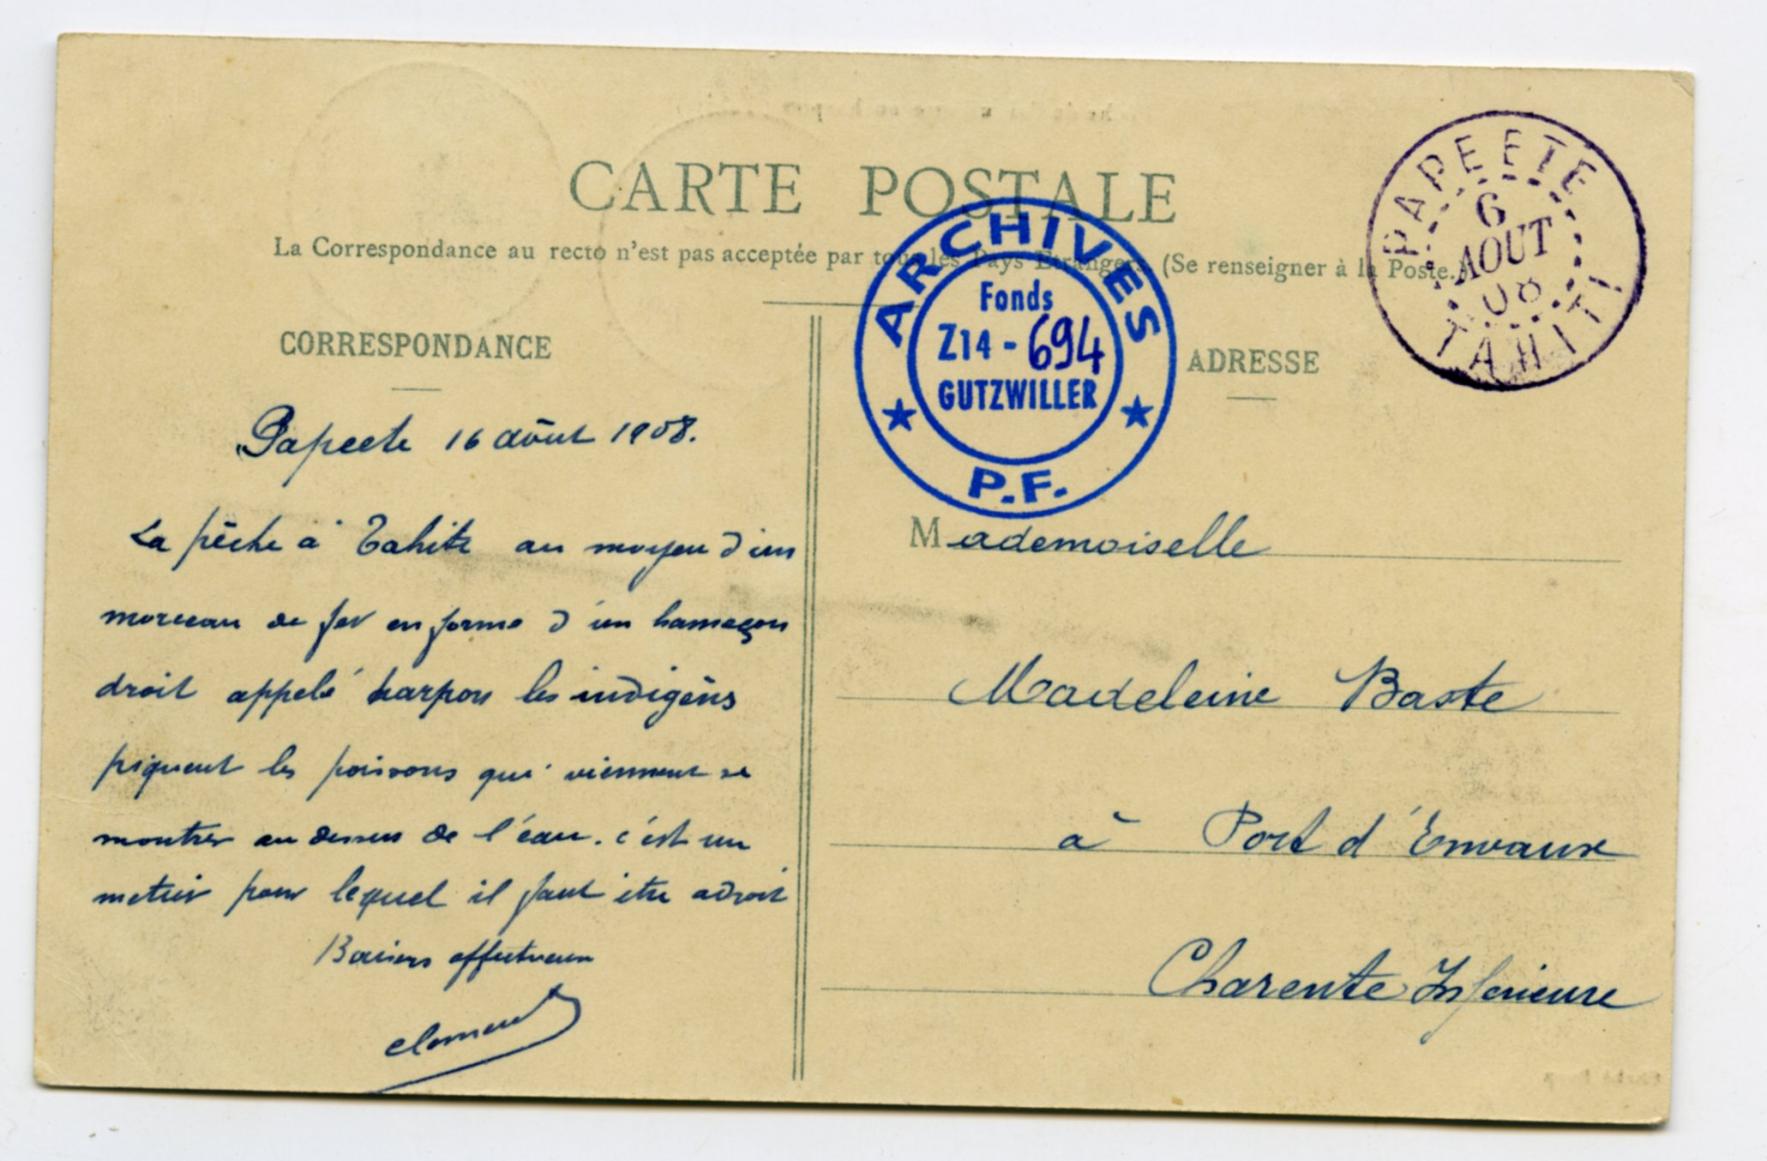 CARTE POSTALE
La Correspondance au recto n'est pas acceptée par tous les Pays Etrangers. (Se renseigner à la Poste.)
PAPEETE
6
AOUT
08
TAHITI
ARCHIVES
Fonds
Z14 - 694
GUTZWILLER
P.F.
CORRESPONDANCE
Papeete 16 août 1908.
La pêche à Tahiti au moyen d'un
morceau de fer en forme d'un hameçon
droit appelé harpon les indigèns
piquent les poissons qui viennent se
montrer au dessus de l'eau. c'est un
metier pour lequel il faut être adroit
Baisers affectueux
ADRESSE
Mademoiselle
Madeleine Baste
à Port d'Envaux
Charente Inférieure